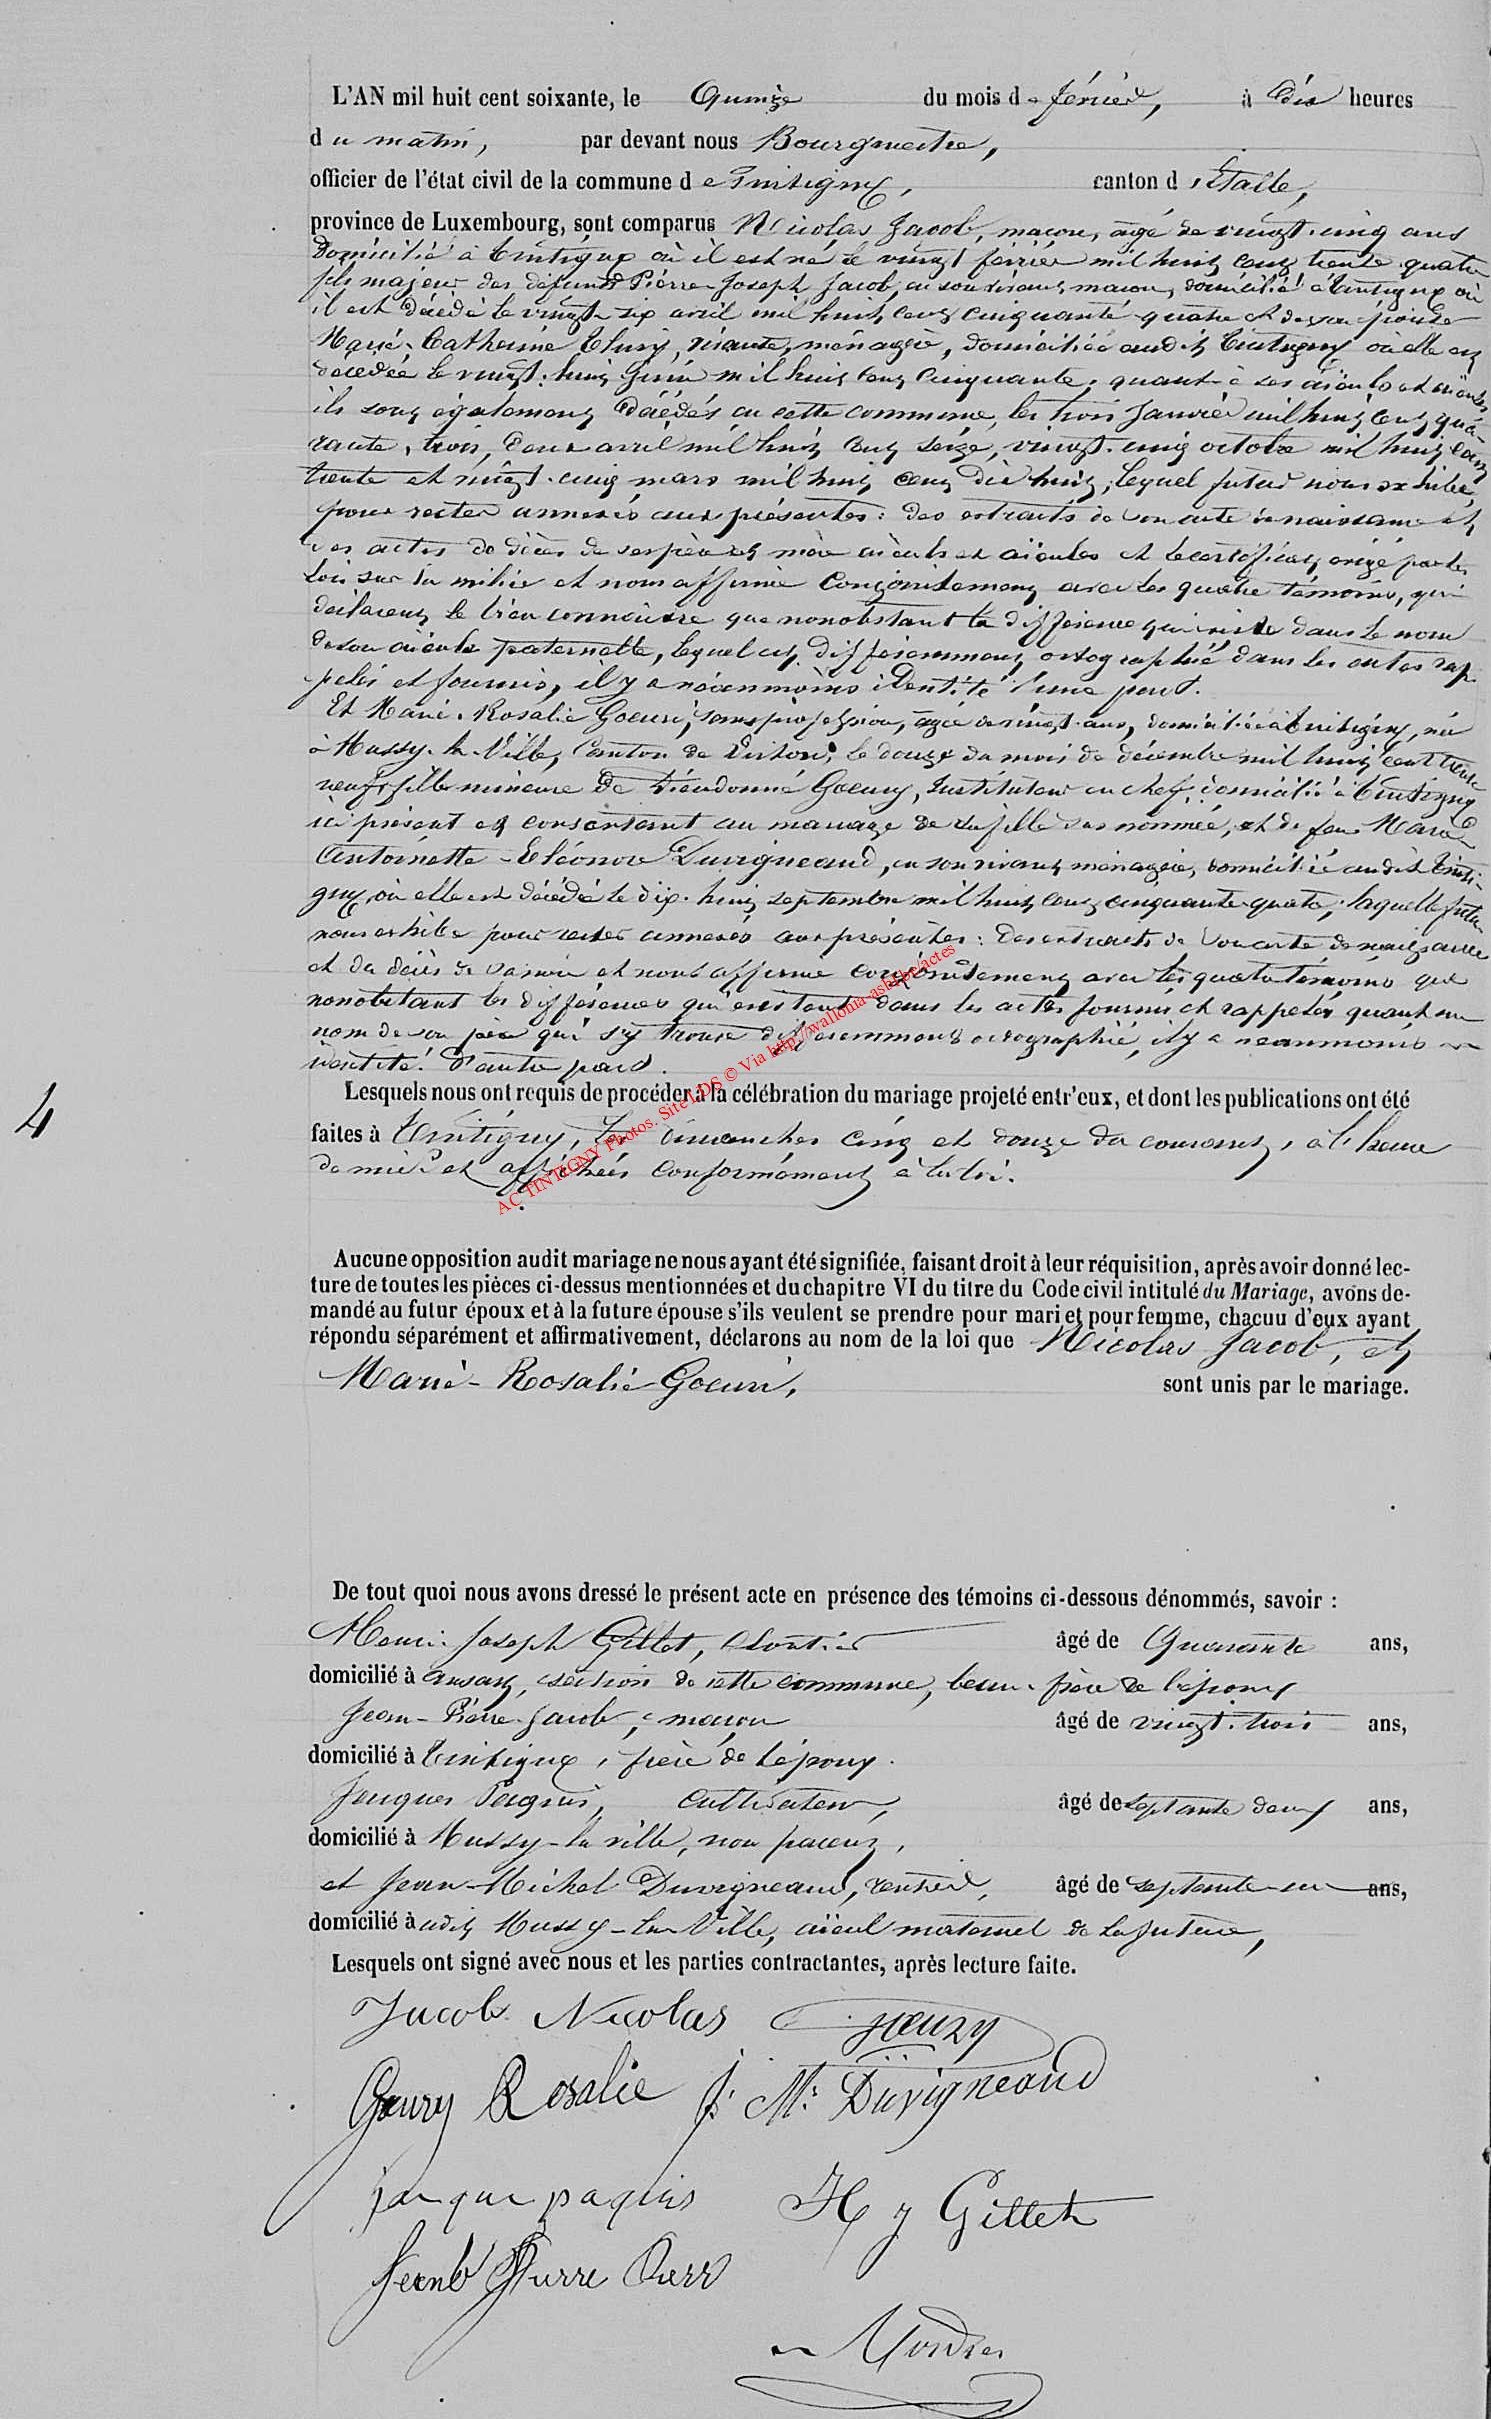 L'AN mil huit cent soixante, le Quinze du mois de février, à dix heures
du matin, par devant nous Bourgmestre,
officier de l'état civil de la commune de Tintigny, canton d'Etalle,
province de Luxembourg, sont comparus Nicolas Jacob, maçon, agé de vingt-cinq ans
domicilié à Tintigny où il est né le vingt février mil huit cent trente-quatre
fils majeur des défunts Pierre-Joseph Jacob, en son vivant maçon, domicilié à Tintigny où
il est décédé le vingt-six avril mil huit cent cinquante-quatre et de son épouse
Marie-Catherine Thiry, vivante, ménagère, domiciliée audit Tintigny où elle est
décédée le vingt-huit juin mil huit cent cinquante; quant à ses aïeuls et aïeules
ils sont également décédés en cette commune, les trois janvier mil huit cent qua-
rante-trois, deux avril mil huit cent seize, vingt-cinq octobre mil huit cent
trente et vingt-cinq mars mil huit cent dix huit; lequel futur nous exhibe,
pour rester annexés aux présentes: des extraits de son acte de naissance et
des actes de décès de ses père et mère aïeuls et aïeules et le certificat exigé par les
lois sur la milice et nous affirme conjointement avec les quatre témoins, qui
déclarent le bien connaitre que nonobstant la différence qui existe dans le nom
de son aïeule paternelle, lequel est différemment ortographié dans les actes rap-
pelés et fournis, il y a néanmoins identité d'une part.
Et Marie-Rosalie Goeuri, sans profession, agée de vingt ans, domiciliée à Tintigny, née
à Mussy-la-Ville, Canton de Virton, le douze du mois de décembre mil huit cent trente
neuf, fille mineure de Dieudonné Goeury, Instituteur en chef, domicilié à Tintigny
ici présent et consentant au mariage de sa fille sus nommée, et de feue Marie
Antoinette-Eléonore Duvigneaud, en son vivant ménagère, domiciliée audit Tinti-
gny, où elle est décédée le dix-huit septembre mil huit cent cinquante-quatre; laquelle future
nous exhibe pour rester annexés aux présentes: des extraits de son acte de naissance
et de décès de sa mère et nous affirme conjointement avec les quatre témoins que
nonobstant les différences qui existent dans les actes fournis et rappelés quant au
nom de son père qui s'y trouve différemment ortographié, il y a néanmoins
identité. d'autre part.
Lesquels nous ont requis de procéder à la célébration du mariage projeté entr'eux, et dont les publications ont été
faites à Tintigny, les dimanches cinq et douze du courant, à l'heure
de midi et affichées conformément à la loi.
AC TINTIGNY Photos. Site LDS © Via http://wallonia-asbl.be/actes
4
Aucune opposition audit mariage ne nous ayant été signifiée, faisant droit à leur réquisition, après avoir donné lec-
ture de toutes les pièces ci-dessus mentionnées et du chapitre VI du titre du Code civil intitulé du Mariage, avons de-
mandé au futur époux et à la future épouse s'ils veulent se prendre pour mari et pour femme, chacuu d'eux ayant
répondu séparément et affirmativement, déclarons au nom de la loi que Nicolas Jacob, et
Marie-Rosalie Goeuri, sont unis par le mariage.
De tout quoi nous avons dressé le présent acte en présence des témoins ci-dessous dénommés, savoir :
Henri-Joseph Gillet, âgé de Quarante ans,
domicilié à Ansart, section de cette commune, beau-frère de l'époux
Jean-Pierre Jacob, maçon âgé de vingt-trois ans,
domicilié à Tintigny, frère de l'époux.
Jacques Paquis, cultivateur, âgé de septante deux ans,
domicilié à Mussy-la-ville, non parent,
et Jean-Michel Duvigneaud, rentier, âgé de septante-un ans,
domicilié à udit Mussy-la-Ville, aïeul maternel de la future,
Lesquels ont signé avec nous et les parties contractantes, après lecture faite.
Jacob Nicolas Goeury
Goeury Rosalie J. M. Duvigneaud
jacque paquis H J Gillet
Jacob Pierre